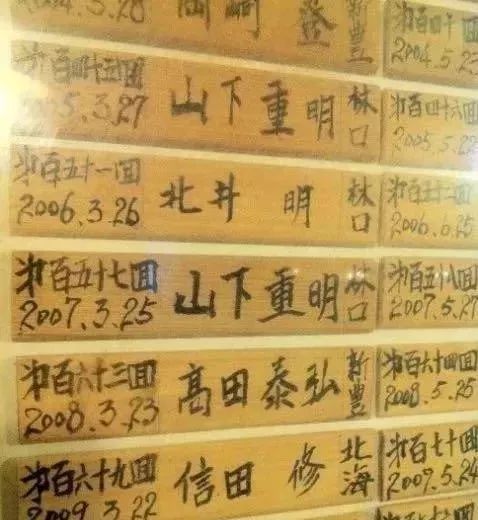 2004.3.28 岡崎 登 新豊
第百四十回 2004.5.23
第百四十五回 2005.3.27 山下重明 林口
第百四十六回 2005.5.22
第百五十一回 2006.3.26 北井 明 林口
第百五十二回 2006.6.25
第百五十七回 2007.3.25 山下重明 林口
第百五十八回 2007.5.27
第百六十三回 2008.3.23 高田泰弘 新豊
第百六十四回 2008.5.25
第百六十九回 2009.3.22 信田 修 北海
第百七十回 2009.5.24